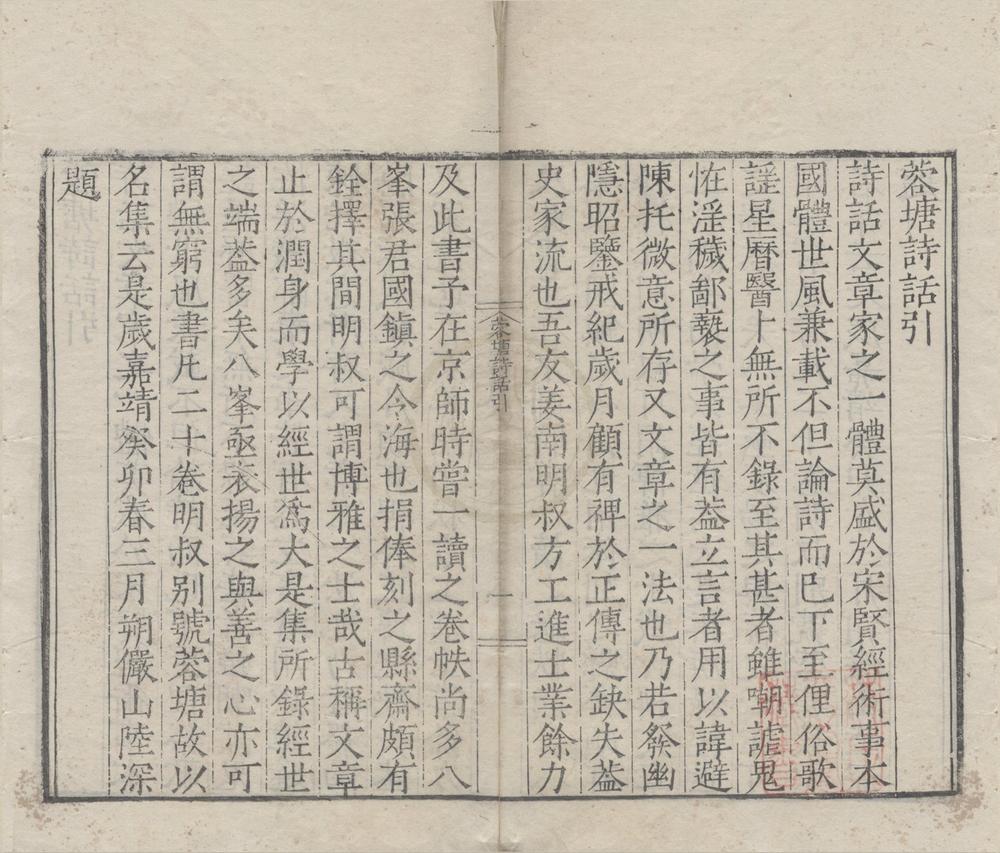 蓉塘詩話引
詩話文章家之一體莫盛於宋賢經術事本
國體世風兼載不但論詩而已下至俚俗歌
謡星曆醫卜無所不錄至其甚者雖嘲謔鬼
恠淫穢鄙褻之事皆有葢立言者用以諱避
陳托微意所存又文章之一法也乃若發幽
隱昭鑒戒紀歲月顧有裨於正傳之缺失葢
史家流也吾友姜南明叔方工進士業餘力
蓉塘詩話引
一
及此書予在京師時嘗一讀之卷帙尚多八
峯張君國鎮之令海也捐俸刻之縣齋頗有
銓擇其間明叔可謂博雅之士哉古稱文章
止於潤身而學以經世爲大是集所錄經世
之端葢多矣八峯亟表揚之與善之心亦可
謂無窮也書凡二十卷明叔别號蓉塘故以
名集云是歲嘉靖癸卯春三月朔儼山陸深
題